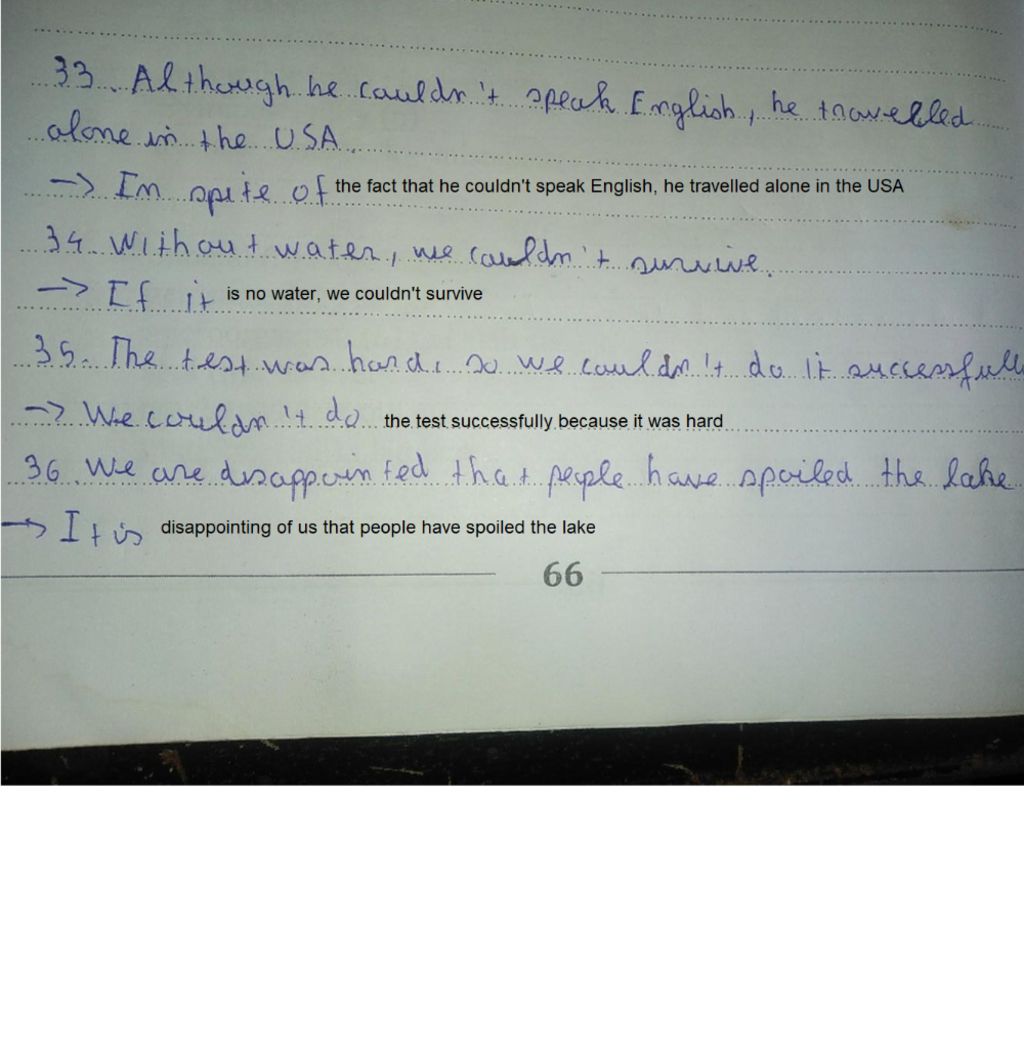 33. Although he couldn't speak English, he travelled
alone in the USA.
→ In spite of the fact that he couldn't speak English, he travelled alone in the USA
34. Without water, we couldn't survive.
→ If it is no water, we couldn't survive
35. The test was hard, so we couldn't do it successfull
→ We couldn't do the test successfully because it was hard
36. We are disappointed that people have spoiled the lake
→ It is disappointing of us that people have spoiled the lake
66